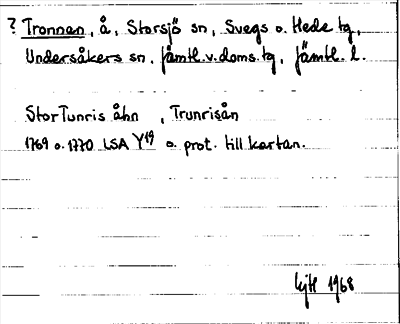 ? Tronnan, å, Storsjö sn, Svegs o. Hede tg,
Undersåkers sn, Jämtl. v. doms. tg, Jämtl. l.
StorTunris åhn , Trunrisån
1769 o. 1770 LSA Y19 o. prot. till kartan.
1968